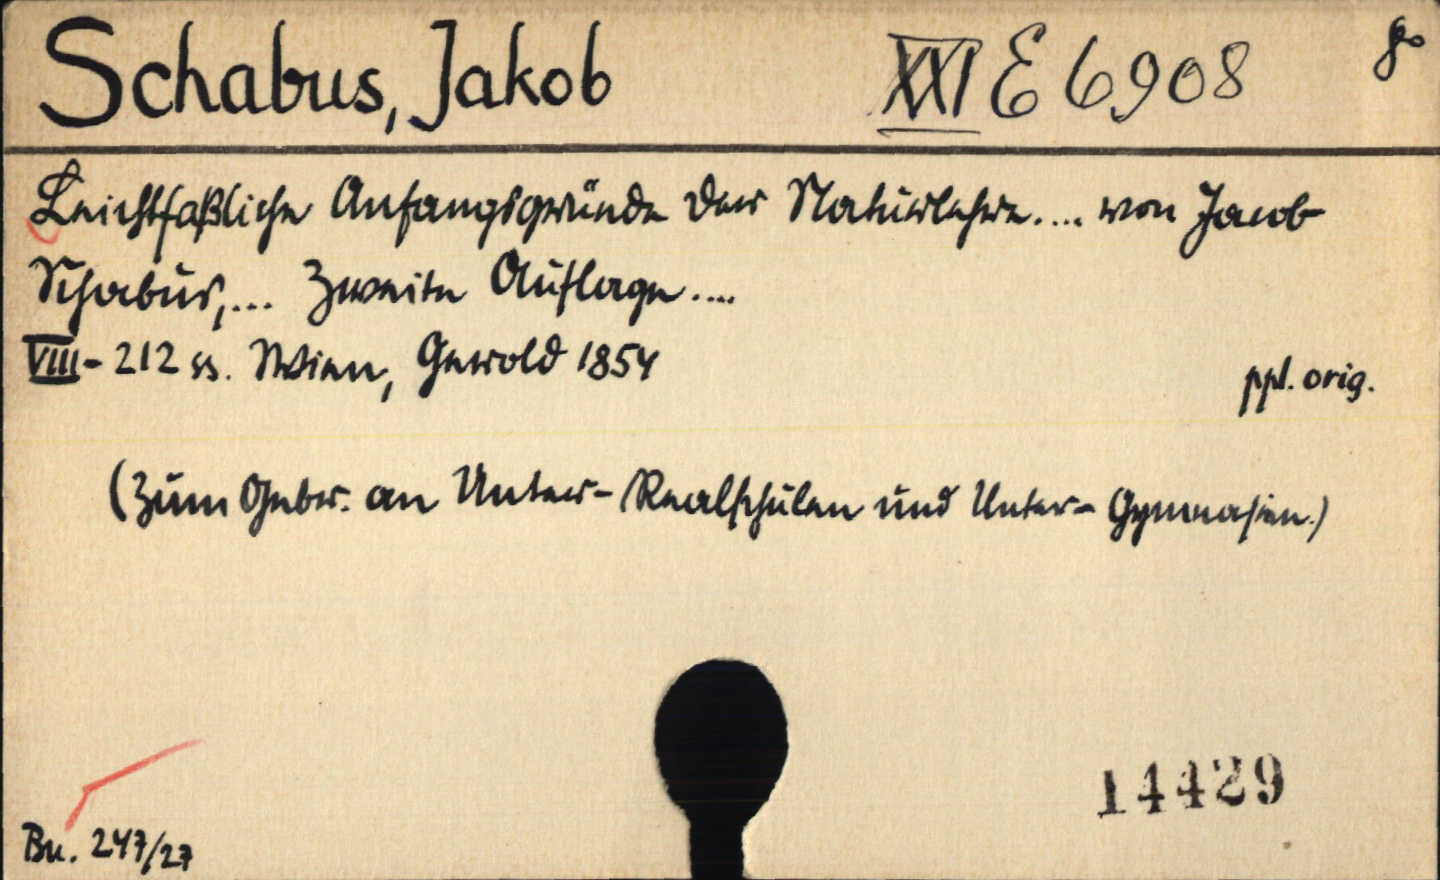 Schabus, Jakob XXI E 6908 8°
Leichtfaßliche Anfangsgründe der Naturlehre.... von Jacob
Schabus,... Zweite Auflage....
VIII- 212 ss. Wien, Gerold 1854
ppl. orig.
(Zum Gebr. an Unter-Realschulen und Unter-Gymnasien.)
14429
Bu. 247/27